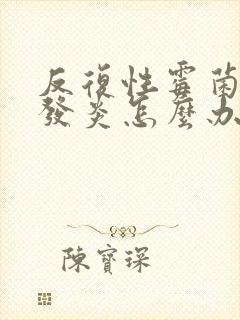 反復性霉菌
發炎怎麼办
陳寶琛